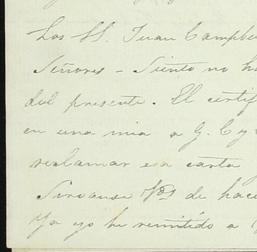 Los SS. Juan Campbe
Señores - Siento no h
del presente. El certif
en una mia a G. C y
reclamar esa carta
Sirvanse Vds de hace
Ya yo he remitido a